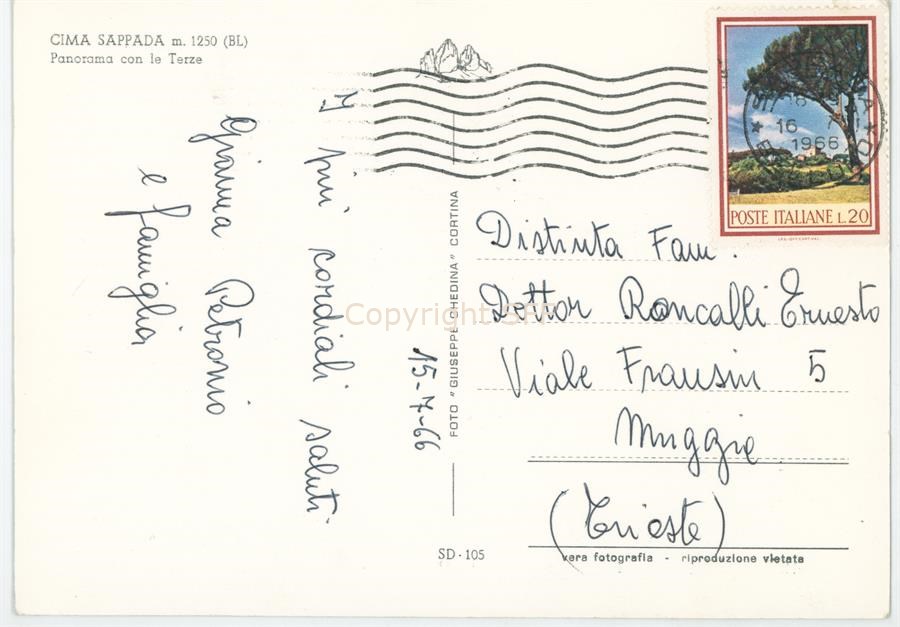 CIMA SAPPADA m. 1250 (BL)
Panorama con le Terze
I più cordiali saluti
Gianna Petronio
e famiglia
15-7-66
FOTO "GIUSEPPE GHEDINA" CORTINA
SD - 105
16
1966
POSTE ITALIANE L.20
Distinta Fam.
Dottor Roncalli Ernesto
Viale Frausin 5
Muggia
(Trieste)
vera fotografia - riproduzione vietata
Copyright SFP